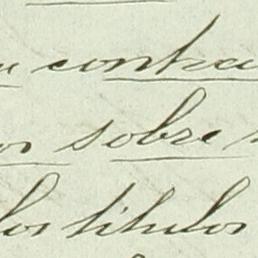 contra
sobre
los títulos